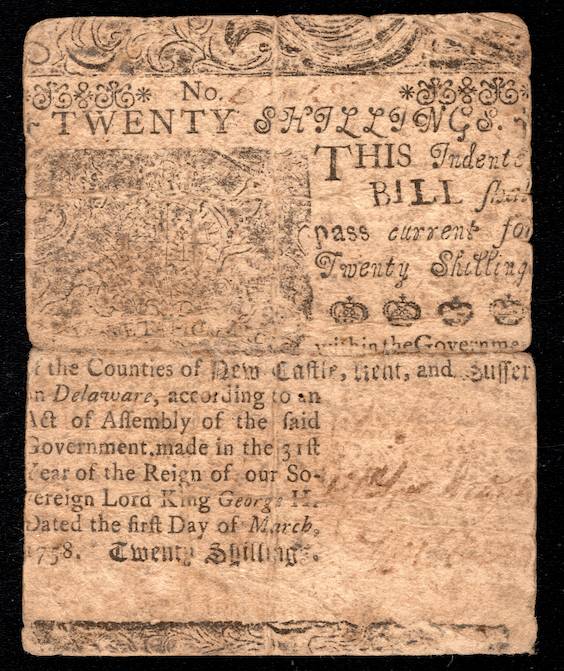 No.
TWENTY SHILLINGS.
THIS Indente
BILL shal
pass current for
Twenty Shilling
within the Governme
f the Counties of New Castle, Kent, and Sussex
on Delaware, according to an
Act of Aſſembly of the ſaid
Government, made in the 31ſt
Year of the Reign of our So-
vereign Lord King George II.
Dated the firſt Day of March,
1758. Twenty Shillings.